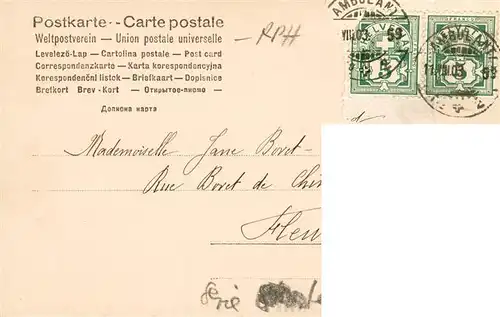 Postkarte -- Carte postale
Weltpostverein — Union postale universelle
Levelező-Lap — Cartolina postale — Post card
Correspondenzkarte — Karta korespondencyjna
Korespondenční listek — Briefkaart — Dopisnice
Brefkort Brev-Kort — Открытое-письмо
Дописна карта
RPH
AMBULANT
VIII.03
59
AMBULANT
VIII.03
59
Mademoiselle Jane Boret-
Rue Boret de Chin
Fleu